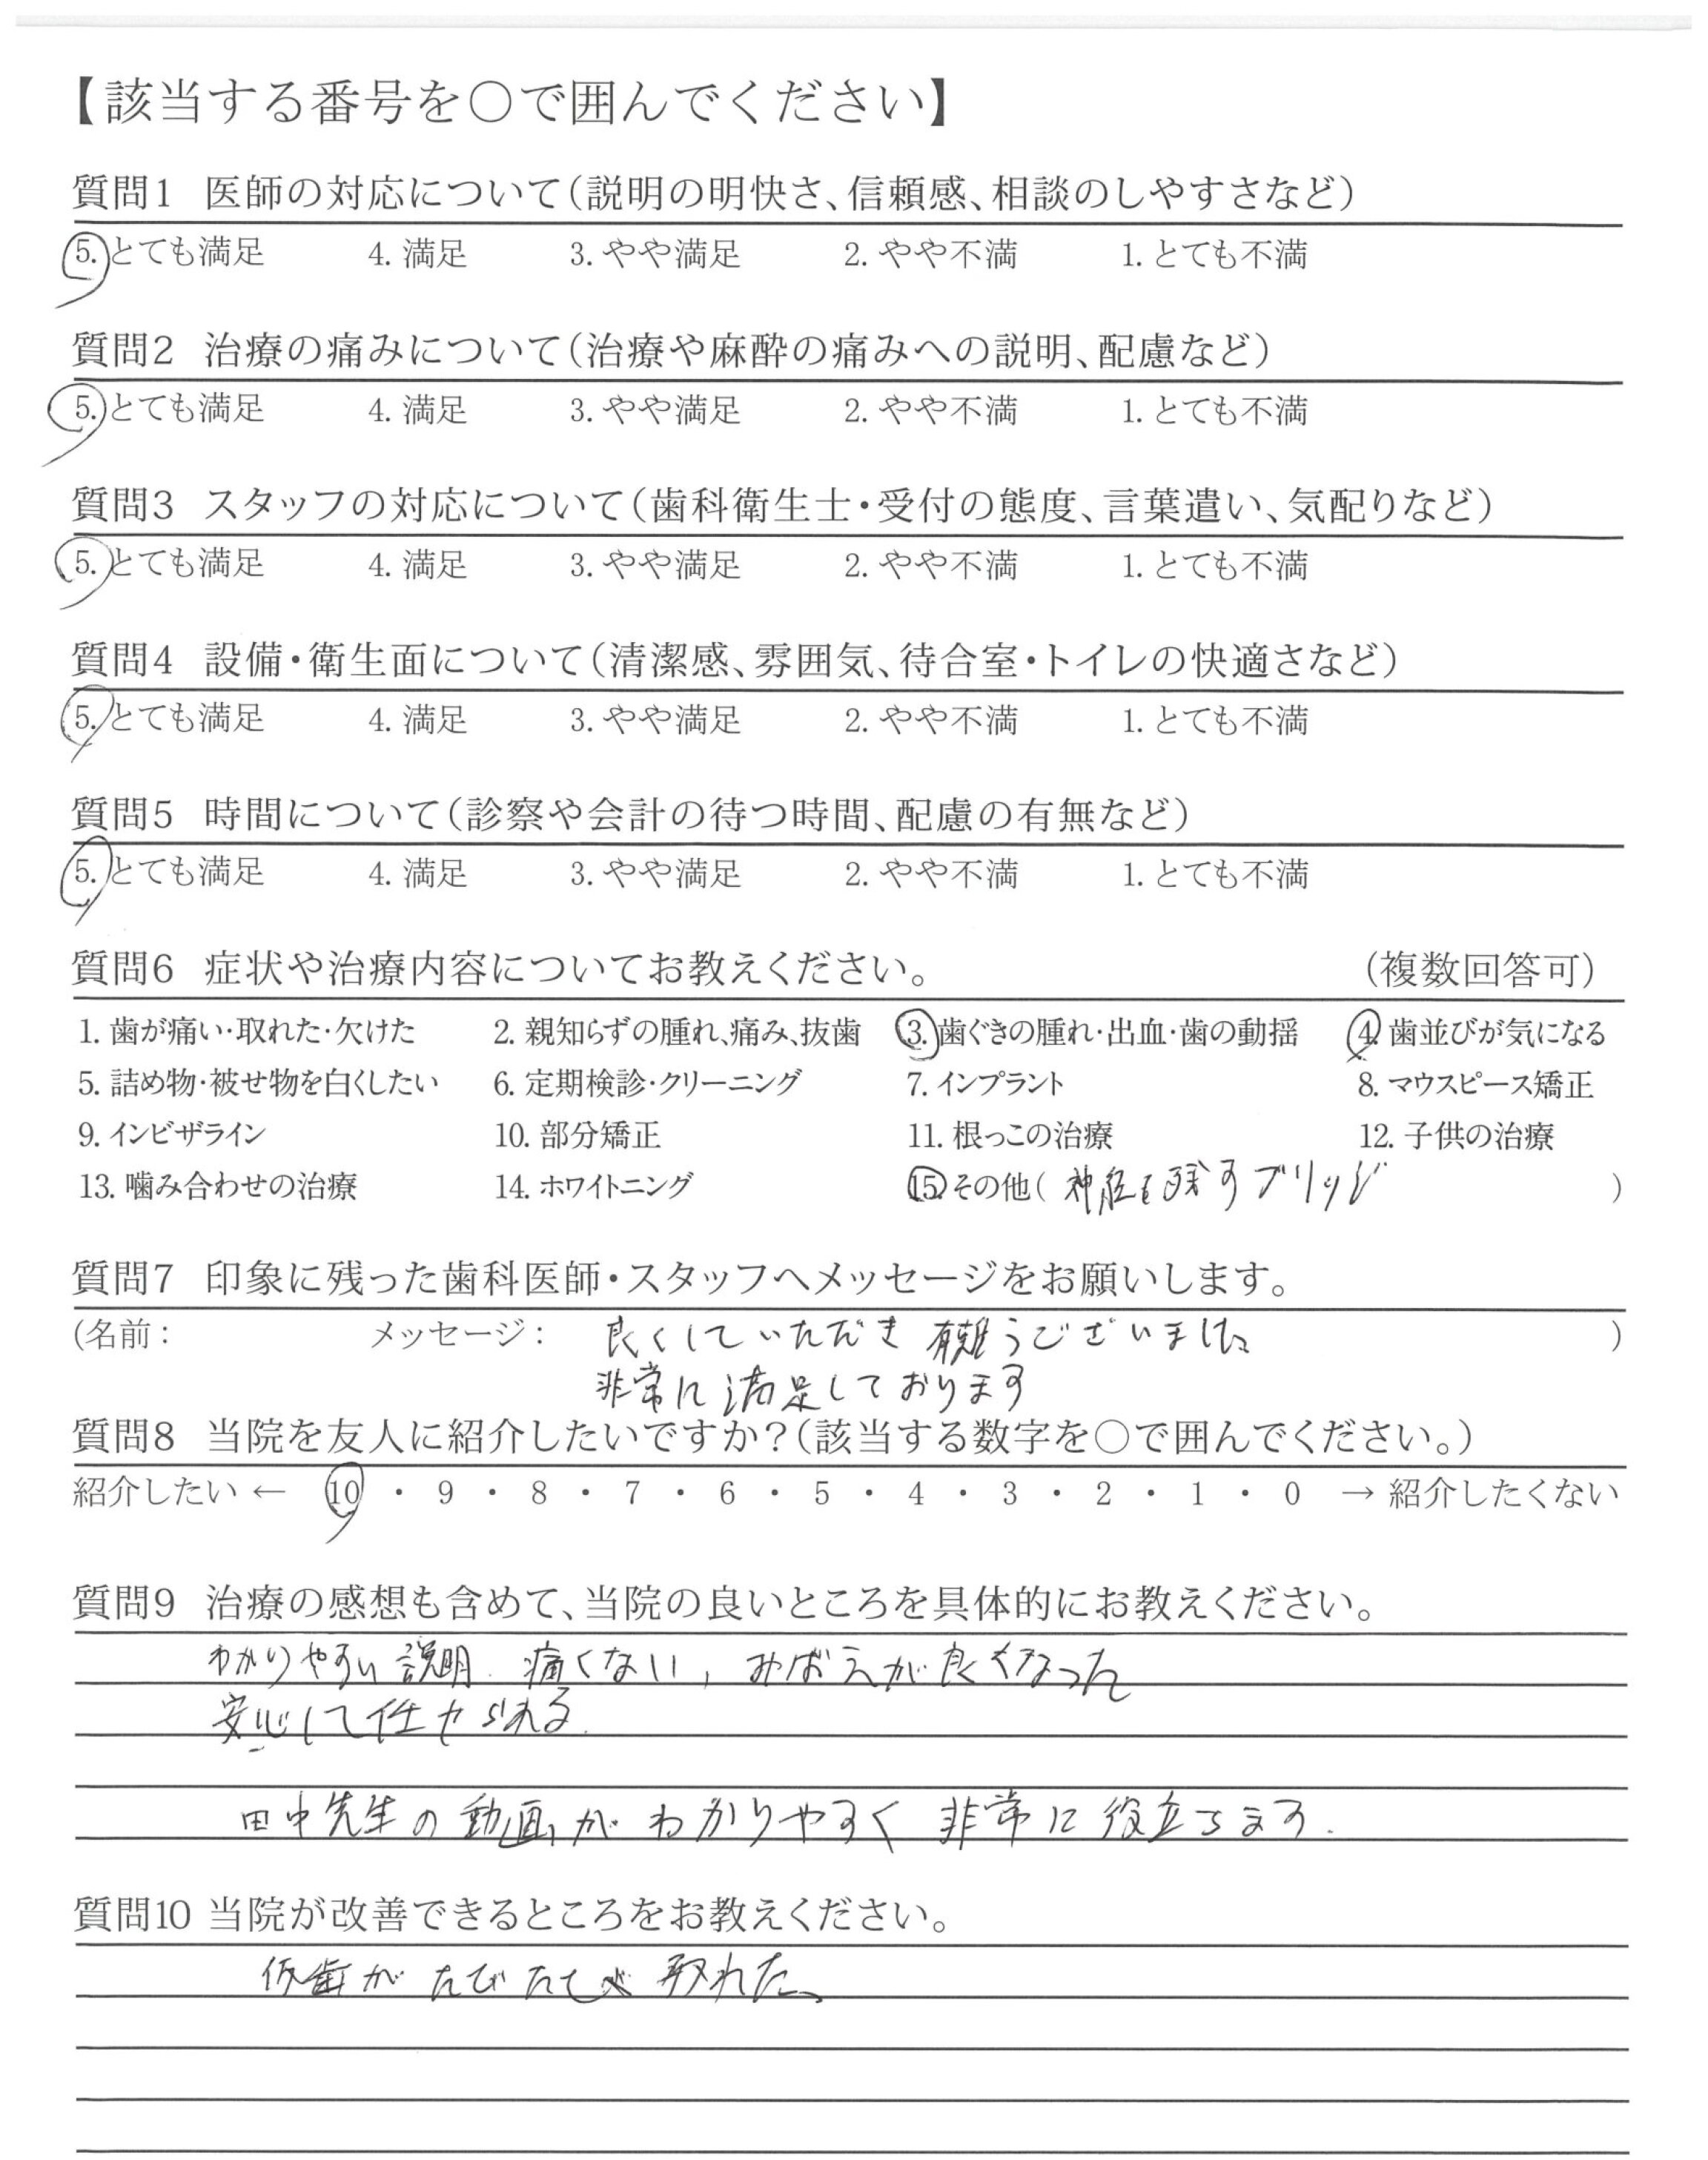 【該当する番号を○で囲んでください】
質問1 医師の対応について(説明の明快さ、信頼感、相談のしやすさなど)
5. とても満足 4. 満足 3. やや満足 2. やや不満 1. とても不満
質問2 治療の痛みについて(治療や麻酔の痛みへの説明、配慮など)
5. とても満足 4. 満足 3. やや満足 2. やや不満 1. とても不満
質問3 スタッフの対応について(歯科衛生士・受付の態度、言葉遣い、気配りなど)
5. とても満足 4. 満足 3. やや満足 2. やや不満 1. とても不満
質問4 設備・衛生面について(清潔感、雰囲気、待合室・トイレの快適さなど)
5. とても満足 4. 満足 3. やや満足 2. やや不満 1. とても不満
質問5 時間について(診察や会計の待つ時間、配慮の有無など)
5. とても満足 4. 満足 3. やや満足 2. やや不満 1. とても不満
質問6 症状や治療内容についてお教えください。 (複数回答可)
1. 歯が痛い・取れた・欠けた 2. 親知らずの腫れ、痛み、抜歯 3. 歯ぐきの腫れ・出血・歯の動揺 4. 歯並びが気になる
5. 詰め物・被せ物を白くしたい 6. 定期検診・クリーニング 7. インプラント 8. マウスピース矯正
9. インビザライン 10. 部分矯正 11. 根っこの治療 12. 子供の治療
13. 噛み合わせの治療 14. ホワイトニング 15. その他( 神経を残すブリッジ )
質問7 印象に残った歯科医師・スタッフへメッセージをお願いします。
(名前: メッセージ: 良くしていただき 有難うございました )
非常に満足しております
質問8 当院を友人に紹介したいですか?(該当する数字を○で囲んでください。)
紹介したい ← 10 ・ 9 ・ 8 ・ 7 ・ 6 ・ 5 ・ 4 ・ 3 ・ 2 ・ 1 ・ 0 → 紹介したくない
質問9 治療の感想も含めて、当院の良いところを具体的にお教えください。
わかりやすい説明. 痛くない, みばえが良くなった
安心して任せられる.
田中先生の動画がわかりやすく 非常に役立ちます.
質問10 当院が改善できるところをお教えください。
仮歯が たびたび 取れた、